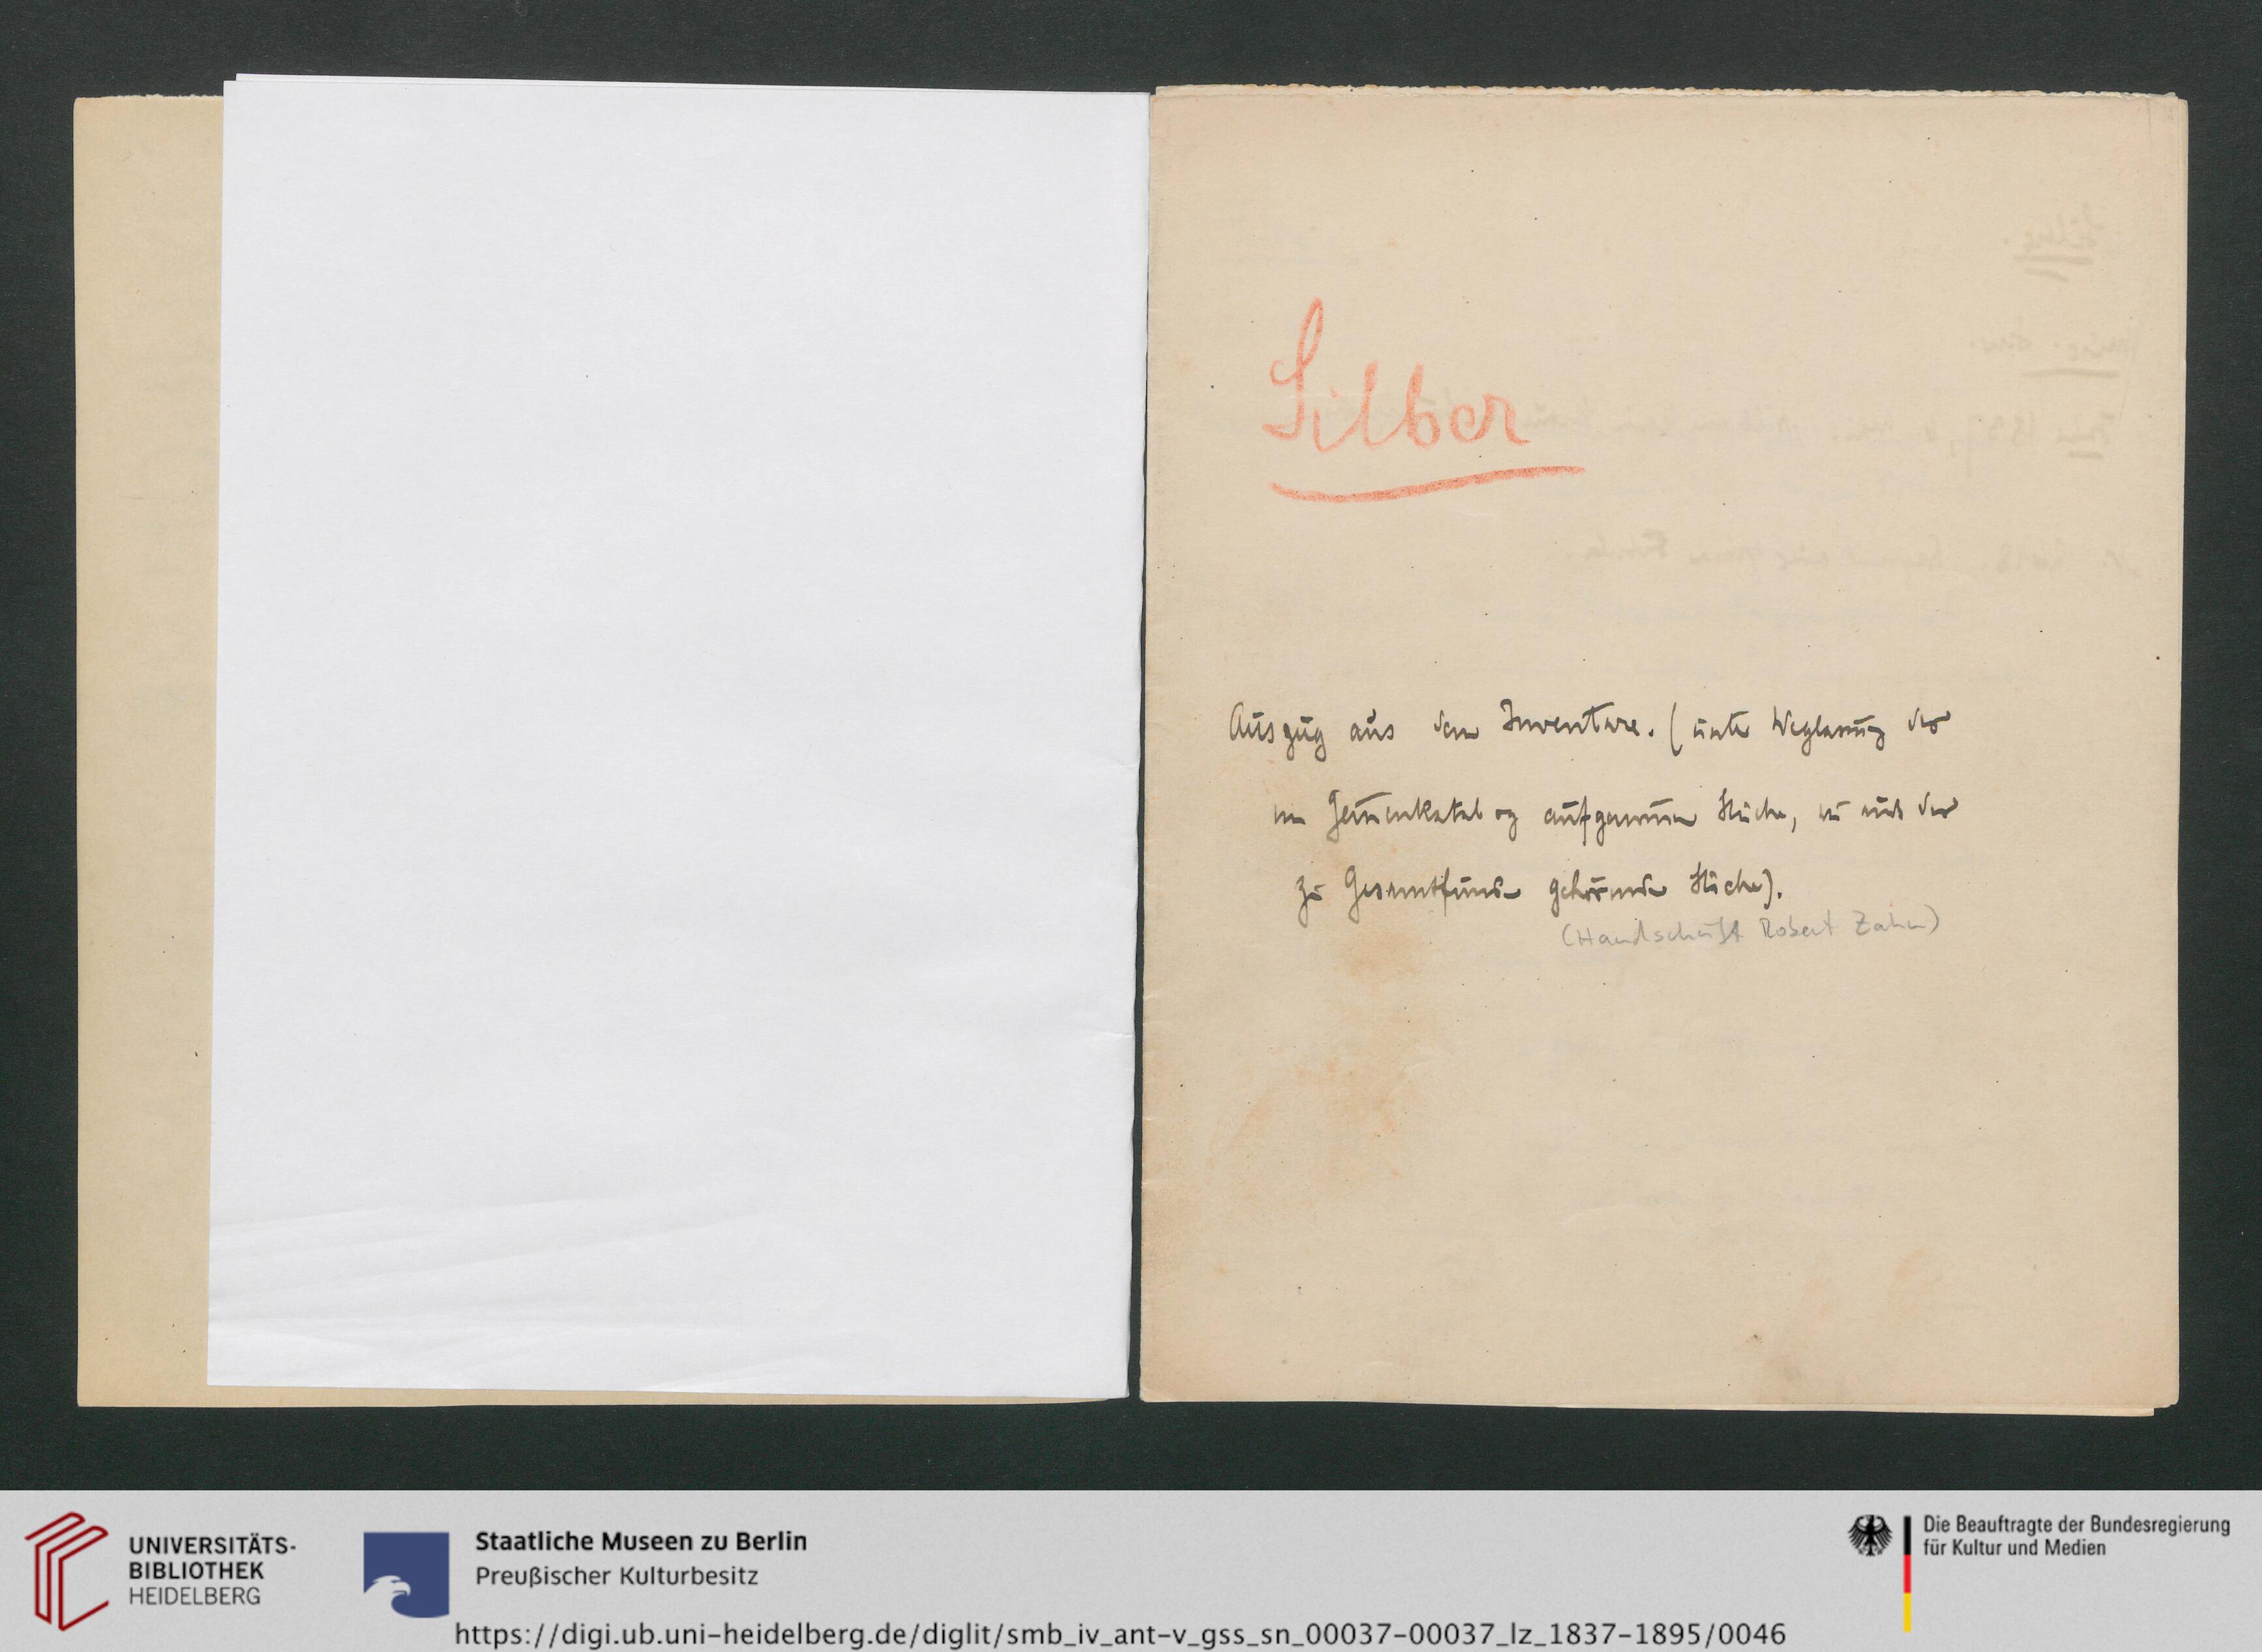 Silber
Auszug aus dem Inventare. (unter Weglassung der
im Gemmenkatalog aufgenommenen Stücke, und der
zu Gesamtfunden gehörenden Stücke).
(Handschrift Robert Zahn)
UNIVERSITÄTS-
BIBLIOTHEK
HEIDELBERG
Staatliche Museen zu Berlin
Preußischer Kulturbesitz
https://digi.ub.uni-heidelberg.de/diglit/smb_iv_ant-v_gss_sn_00037-00037_lz_1837-1895/0046
Die Beauftragte der Bundesregierung
für Kultur und Medien